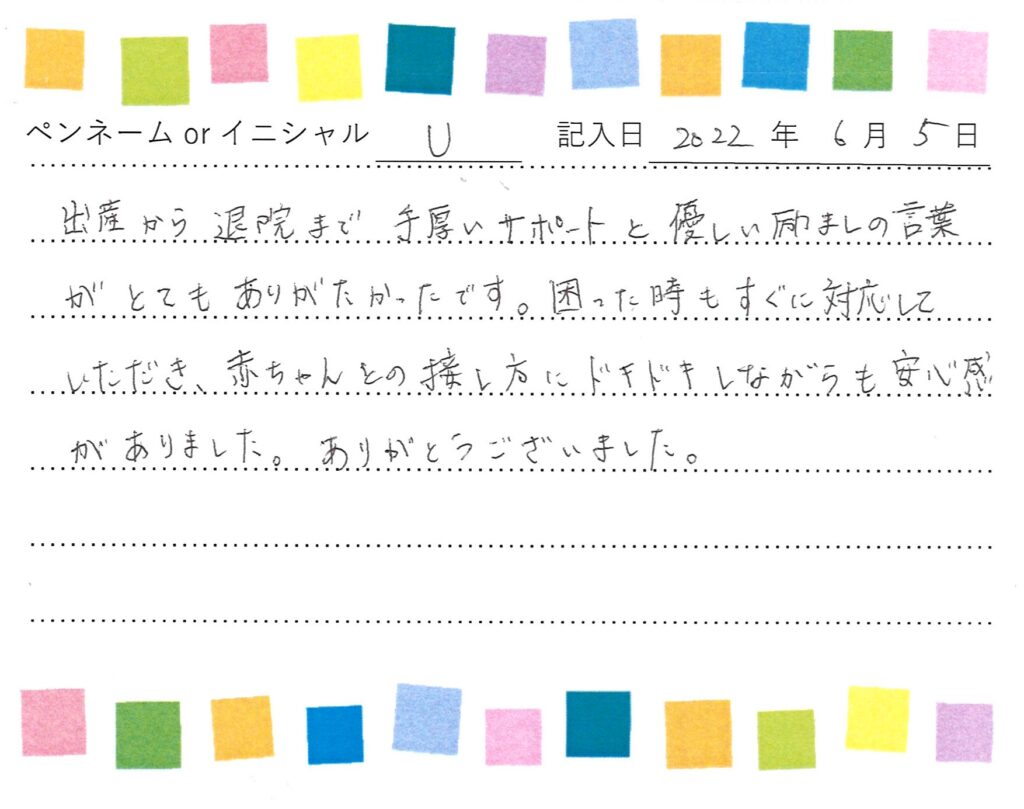 ペンネーム or イニシャル U 記入日 2022 年 6 月 5 日
出産から退院まで 手厚いサポートと優しい励ましの言葉
がとてもありがたかったです。困った時もすぐに対応して
いただき、赤ちゃんとの接し方にドキドキしながらも安心感
がありました。ありがとうございました。